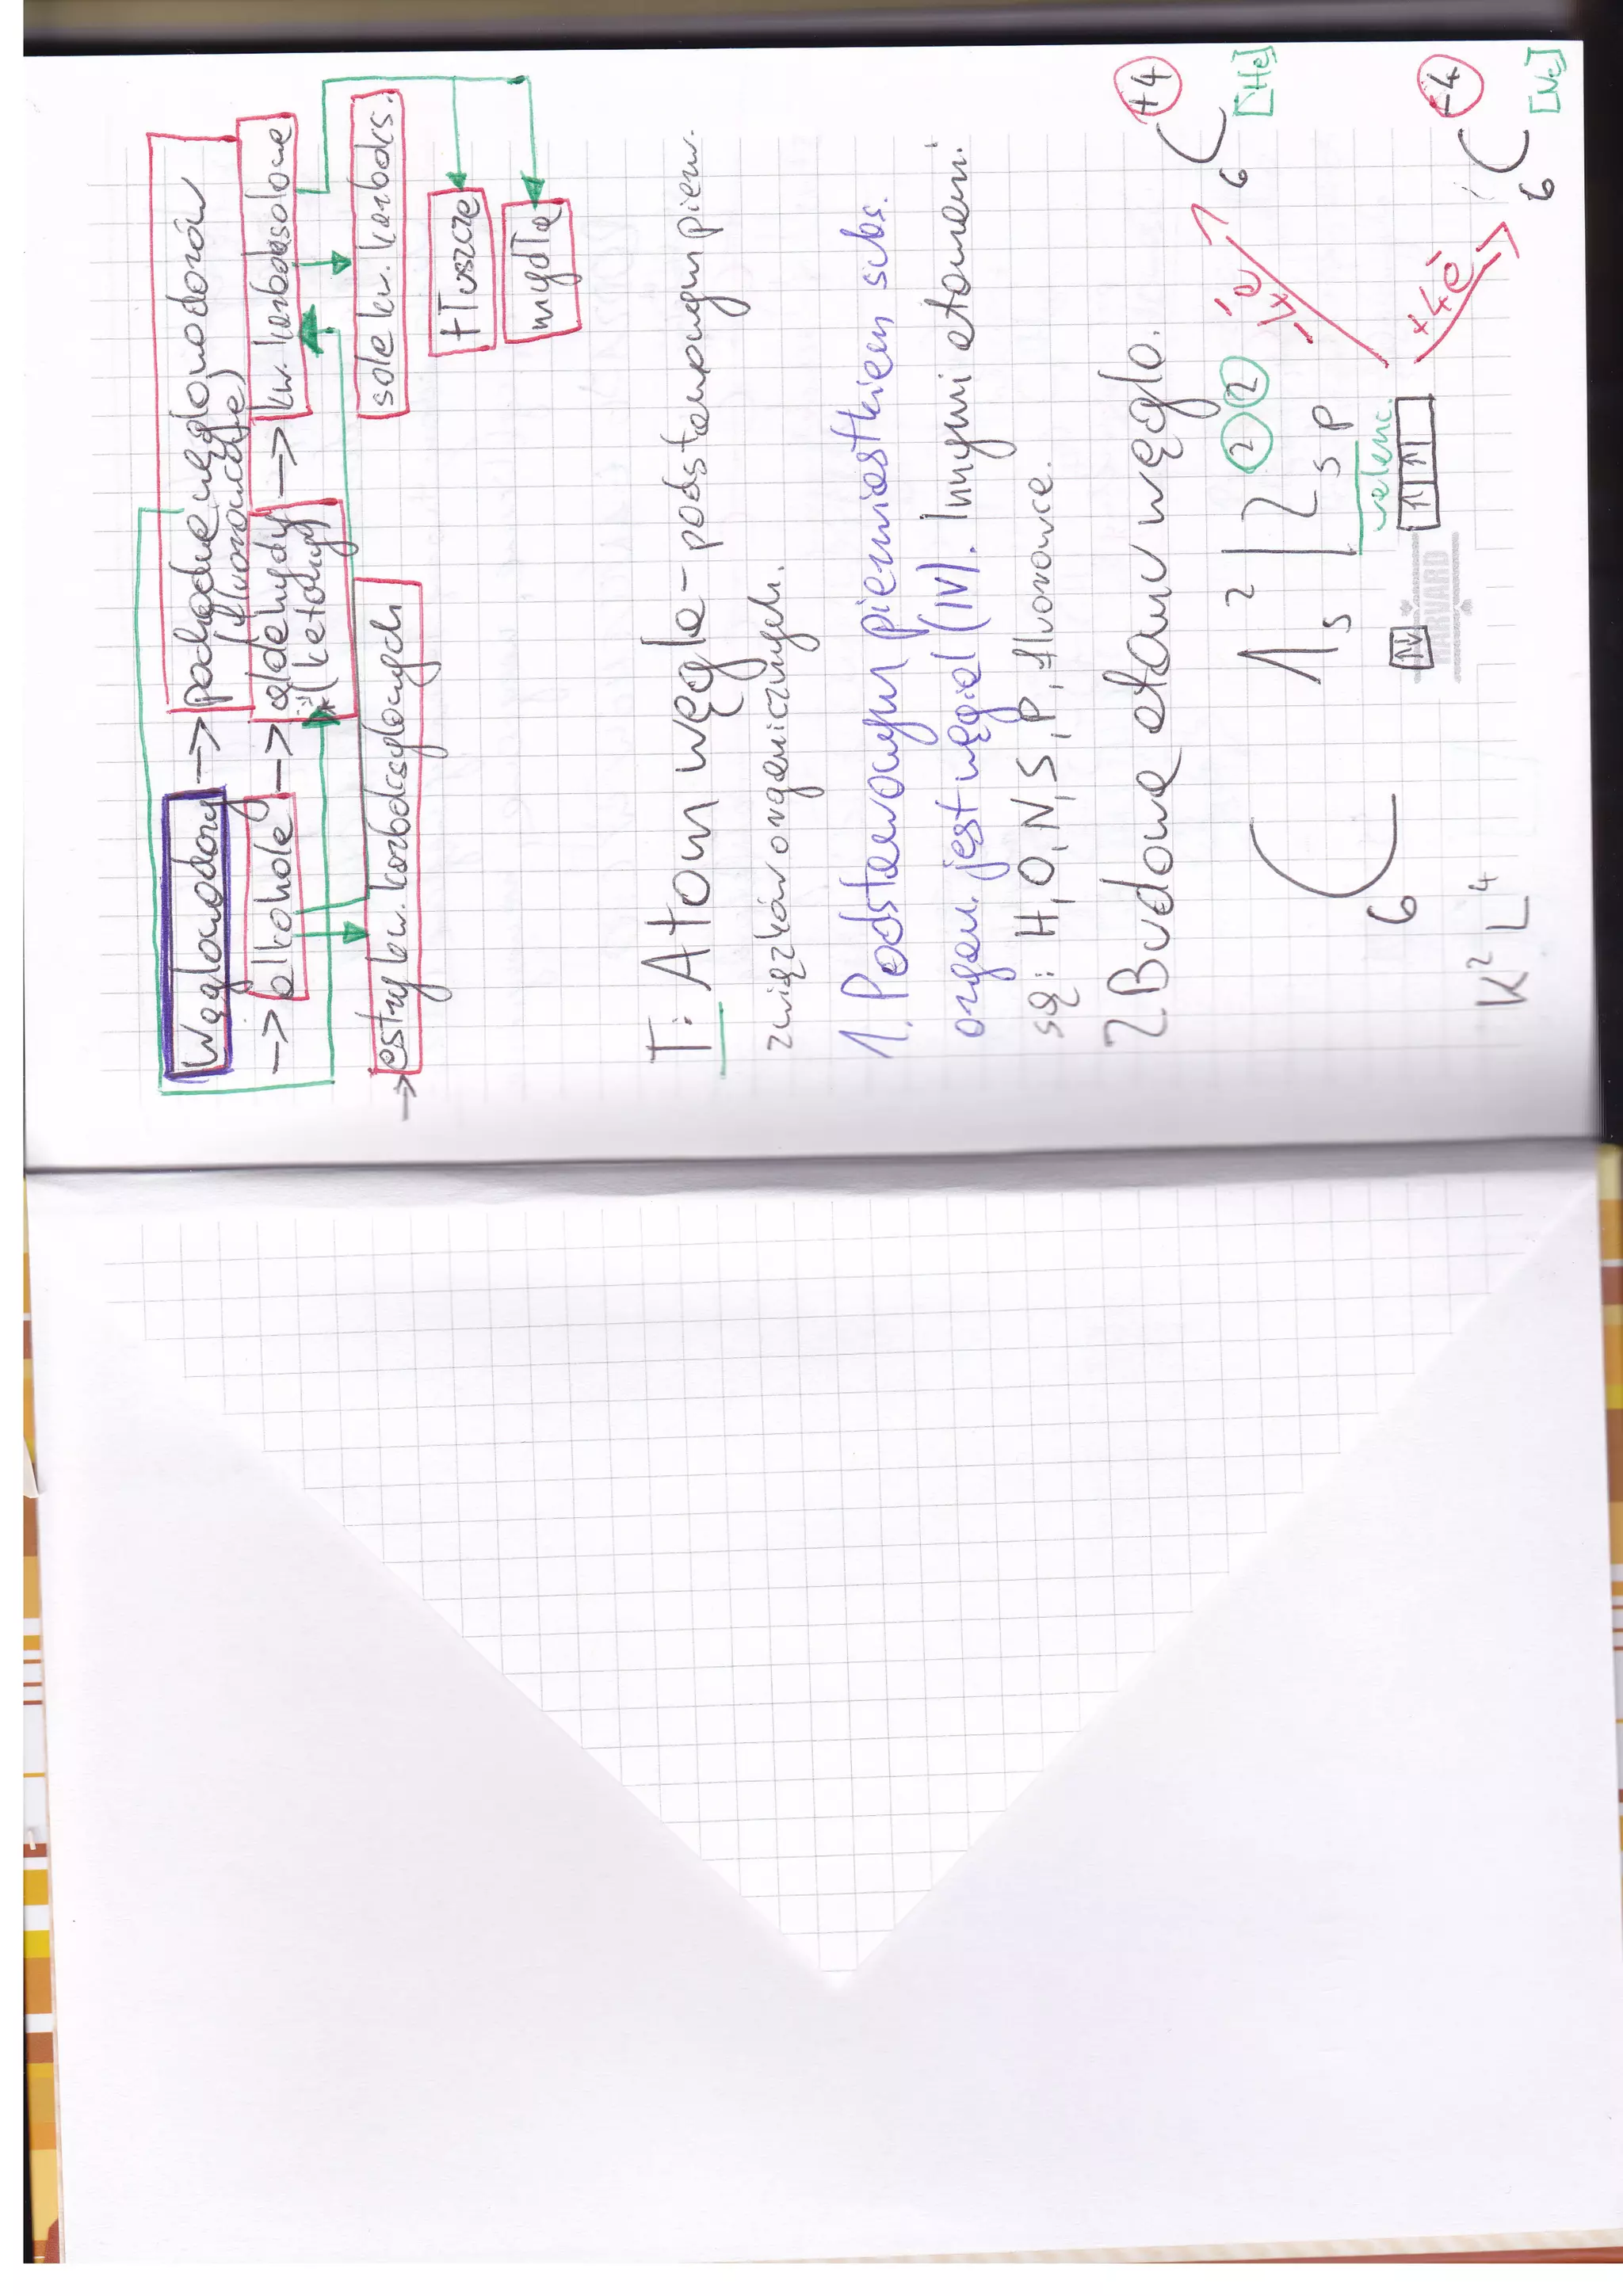 Węglowodory → pochodne węglowodorów
(fluorowcowe)
→ alkohole → aldehydy → kw. karboksylowe
* (ketony)
→ estry kw. karboksylowych
sole kw. karboks.
tłuszcze
mydła
T: Atom węgla - podstawowym pierw.
związków organicznych.
1. Podstawowym pierwiastkiem subs.
organ. jest węgiel (IV). Innymi atomami
są: H, O, N, S, P, fluorowce.
2 Budowa atomu węgla.
₆C 1s² | 2s² p²
walenc.
-4e⁻
₆C +4
[He]
+4e⁻
₆C -4
[Ne]
K² L⁴
HARVARD